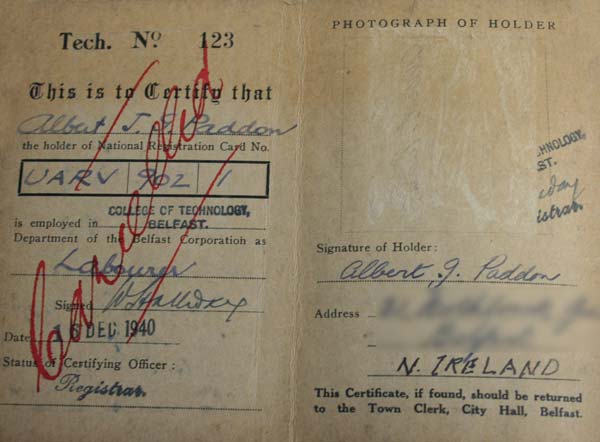 Tech. No 123
This is to Certify that
Albert J. Paddon
the holder of National Registration Card No.
UARV 902 1
COLLEGE OF TECHNOLOGY,
is employed in BELFAST.
Department of the Belfast Corporation as
Labourer
Signed W Halliday
Date DEC 1940
Status of Certifying Officer :
Registrar.
Cancelled
PHOTOGRAPH OF HOLDER
HNOLOGY,
ST.
day
istrar.
Signature of Holder :
Albert J. Paddon
Address
N. IRELAND
This Certificate, if found, should be returned
to the Town Clerk, City Hall, Belfast.